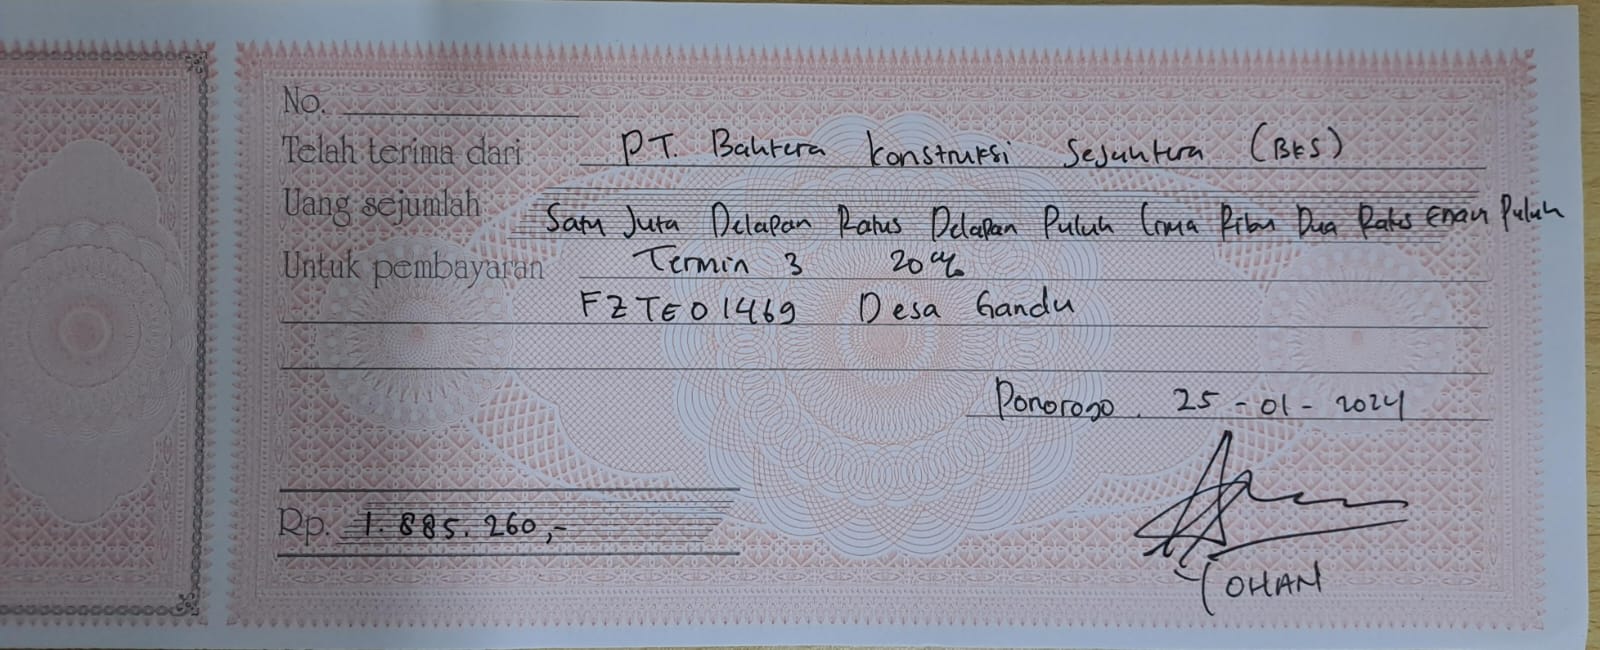 No.
Telah terima dari PT. Bahtera Konstruksi Sejahtera (BKS)
Uang sejumlah Satu Juta Delapan Ratus Delapan Puluh Lima Ribu Dua Ratus Enam Puluh
Untuk pembayaran Termin 3 20%
FZTE01469 Desa Gandu
Ponorogo. 25-01-2024
Rp. 1.885.260,-
YOHAN